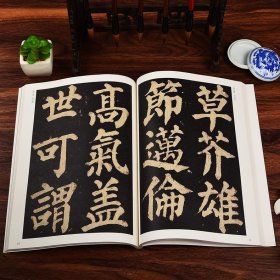 草芥雄
節邁倫
高氣盖
世可謂